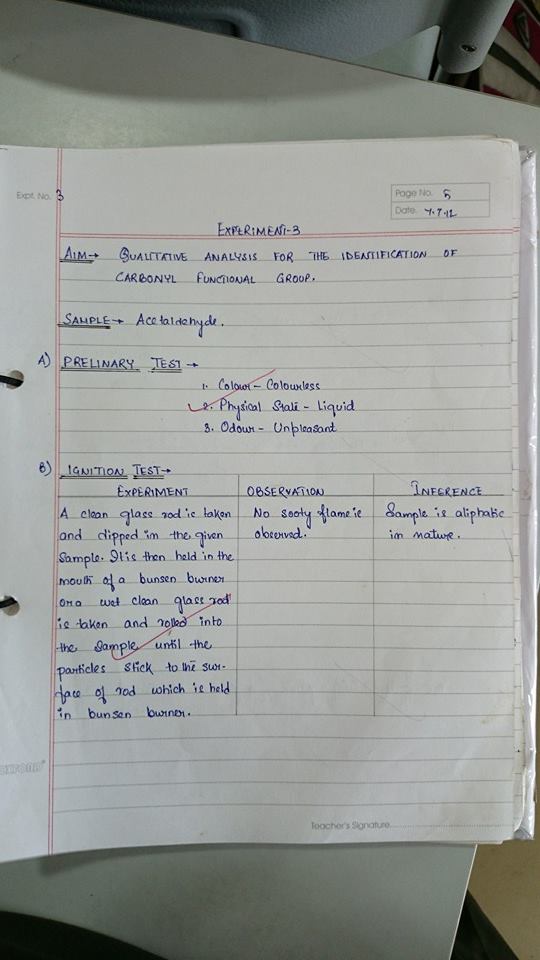 Expt. No. 3
Page No. 5
Date. 7.7.12
EXPERIMENT-3
AIM→ QUALITATIVE ANALYSIS FOR THE IDENTIFICATION OF
CARBONYL FUNCTIONAL GROUP.
SAMPLE→ Acetaldehyde.
A) PRELINARY TEST→
1. Colour - Colourless
2. Physical State - Liquid
3. Odour - Unpleasant
B) IGNITION TEST→
EXPERIMENT OBSERVATION INFERENCE
A clean glass rod is taken No sooty flame is Sample is aliphatic
and dipped in the given observed. in nature.
Sample. It is then held in the
mouth of a bunsen burner
or a wet clean glass rod
is taken and rolled into
the Sample until the
particles stick to the sur-
face of rod which is held
in bunsen burner.
OXFORD
Teacher's Signature